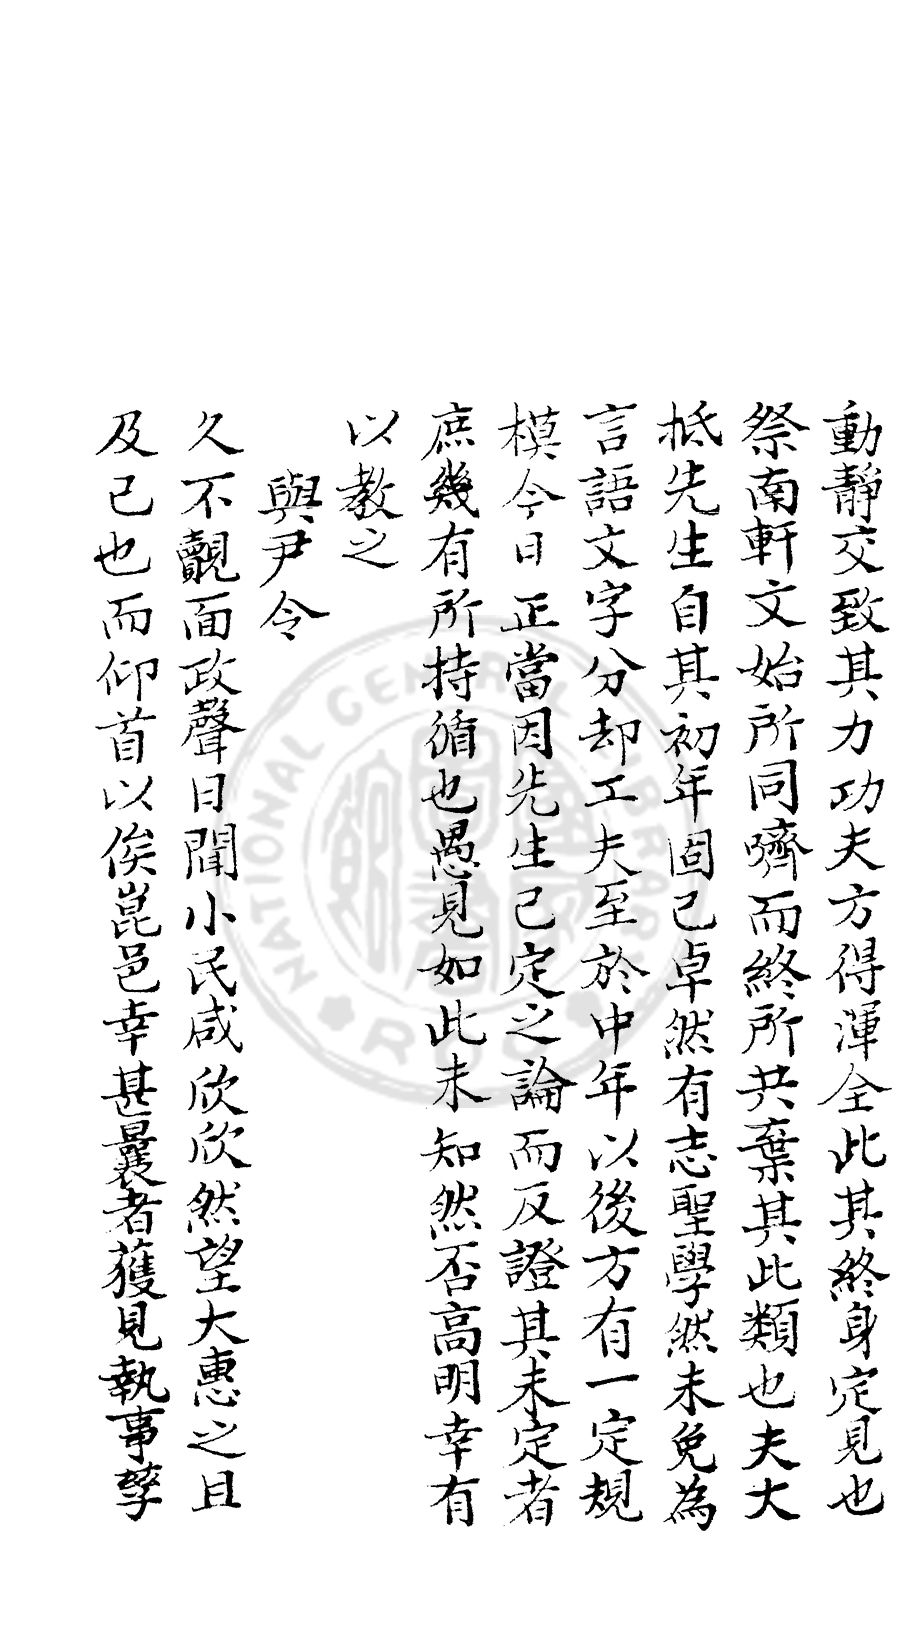 動靜交致其力功夫方得渾全此其終身定見也
祭南軒文始所同嚌而終所共棄其此類也夫大
抵先生自其初年固已卓然有志聖學然未免為
言語文字分却工夫至於中年以後方有一定規
模今日正當因先生已定之論而反證其未定者
庶幾有所持循也愚見如此未知然否高明幸有
以教之
與尹令
久不覿面政聲日聞小民咸欣欣然望大惠之且
及己也而仰首以俟崑邑幸甚曩者獲見執事孳
NATIONAL CENTRAL LIBRARY
ROC